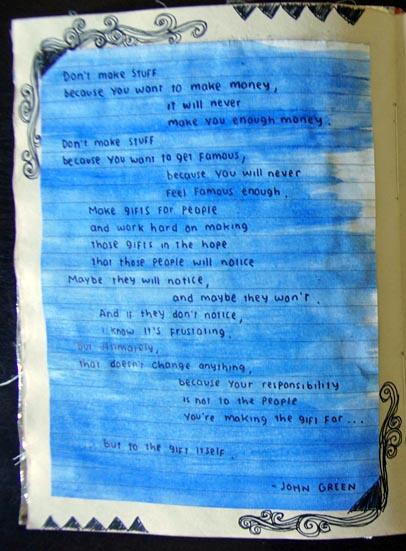 Don't make stuff
because you want to make money,
it will never
make you enough money.
Don't make stuff
because you want to get famous,
because you will never
feel famous enough.
Make gifts for people
and work hard on making
those gifts in the hope
that those people will notice
Maybe they will notice,
and maybe they won't.
And if they don't notice,
i know it's frustating.
but Ultimately,
that doesn't change anything,
because your responsibility
is not to the people
you're making the gift for...
... but to the gift itself.
- JOHN GREEN